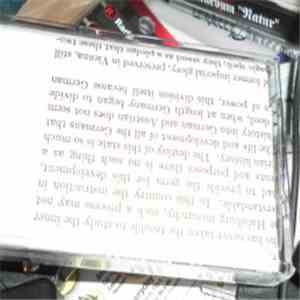 has never taken the trouble to study the inner
Habsburg monarchy, such a process may not
understandable. In this country the instruction in
but to provide the germ for this development,
and purposes there is no such thing as a
history. The destiny of this state is so much
the life and development of all the Germans that
history into German and Austrian does not seem
deed, when at length Germany began to divide
of power, this division itself became German
of former imperial glory, preserved in Vienna, still
magic spell; they stand as a pledge that these two-
"Natur"